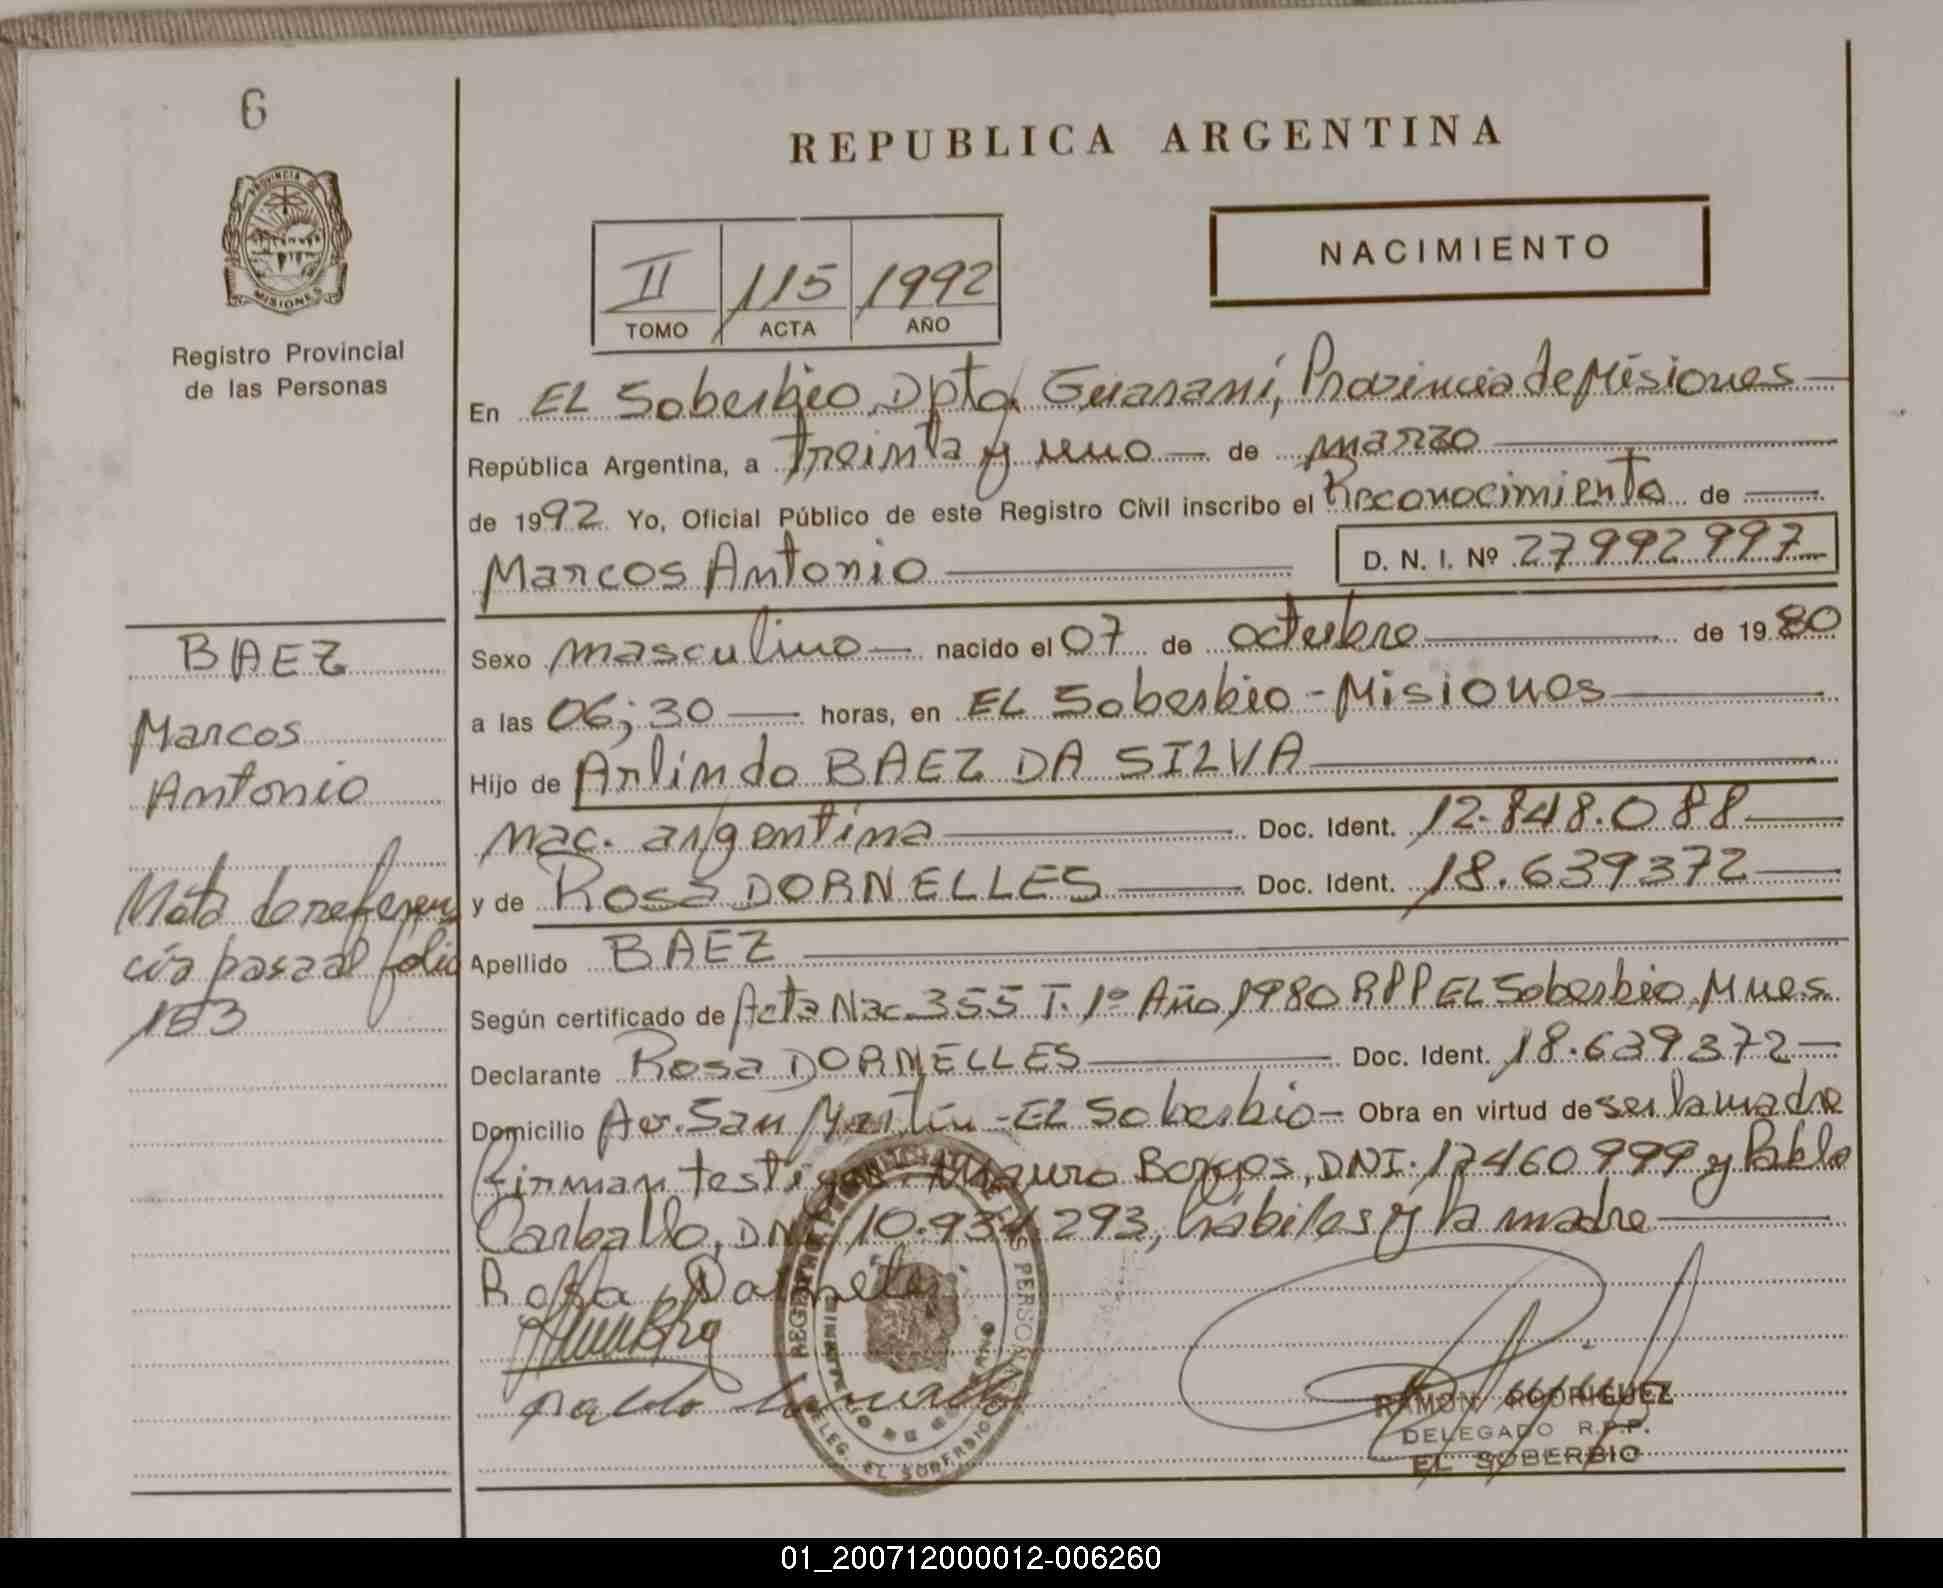 6
PROVINCIA DE
MISIONES
Registro Provincial
de las Personas
REPUBLICA ARGENTINA
II 115 1992
TOMO ACTA AÑO
NACIMIENTO
En EL Soberbio, Dpto. Guaraní, Provincia de Misiones
República Argentina, a treinta y uno de marzo
de 1992. Yo, Oficial Público de este Registro Civil inscribo el Reconocimiento de
Marcos Antonio D. N. I. Nº 27992997
Sexo masculino nacido el 07 de octubre de 1980
a las 06;30 horas, en EL Soberbio - Misiones
Hijo de Arlindo BAEZ DA SILVA
nac. argentina Doc. Ident. 12.848.088
y de Rosa DORNELLES Doc. Ident. 18.639372
Apellido BAEZ
Según certificado de Acta Nac. 355 T. 1º Año 1980 RPP EL Soberbio, Mnes.
Declarante Rosa DORNELLES Doc. Ident. 18.639372
Domicilio Av. San Martín - EL Soberbio - Obra en virtud de ser la madre
firman testigos Mauro Borges, DNI. 17460999 y Pablo
Carballo, DNI 10.934293, hábiles y la madre
Rosa Dornelles
BAEZ
Marcos
Antonio
Nota de referen
cia pasa al folio
153
REGISTRO PROVINCIAL DE LAS PERSONAS
DELEG. EL SOBERBIO
RAMON RODRIGUEZ
DELEGADO R.P.P.
EL SOBERBIO
01_200712000012-006260